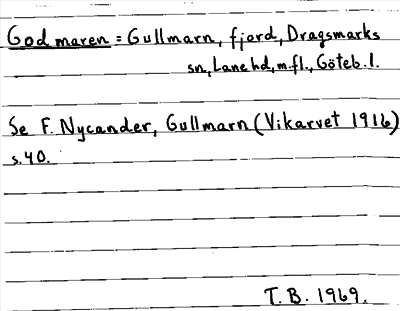 God maren = Gullmarn, fjord, Dragsmarks
sn, Lane hd, m.fl., Göteb. l.
Se F. Nycander, Gullmarn (Vikarvet 1916)
s. 40.
T. B. 1969.